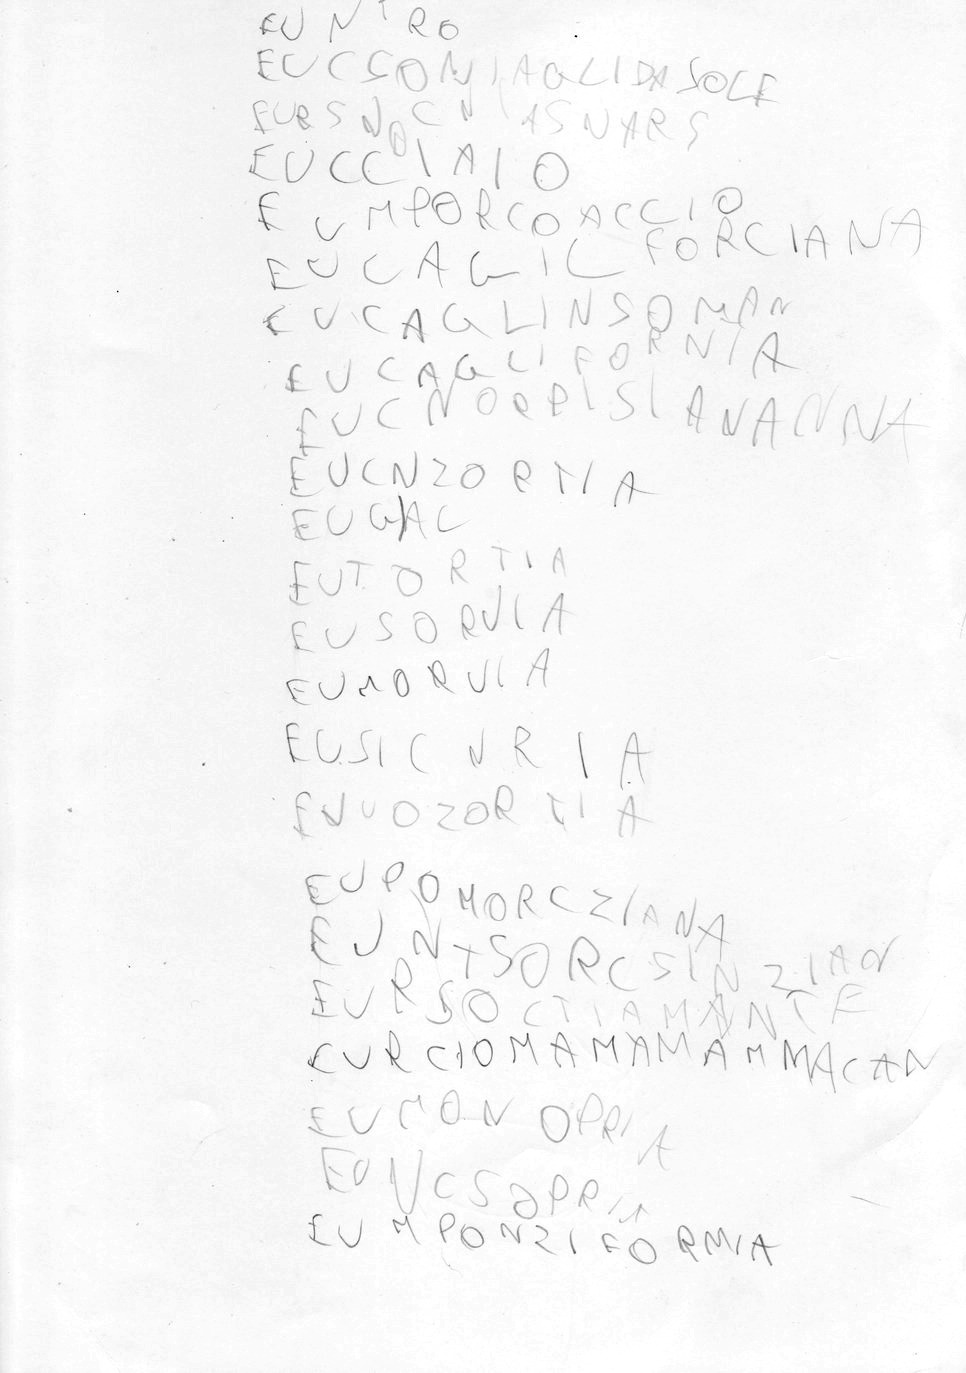 EUNTRO
EUCSONIAGLIDASOLE
EUCCIAIO
EUMPORCOACCIO
EUCAGIC FORCIANA
EUCAGLINSOMAN
EUCAGLIFORNIA
EUCNORPISIANANNA
EUCNZORTIA
EUGAC
EUTORTIA
EUSORVIA
EUMORVIA
EUSICURIA
EUVOZORTIA
EUPOMORCZIANA
EUNTSORCSINZIAN
EURSOCTIAMANTE
EURCIOMAMAMAMMACAN
EUMONOPRIA
EUNCSOPRIA
EUMPONZIFORMIA